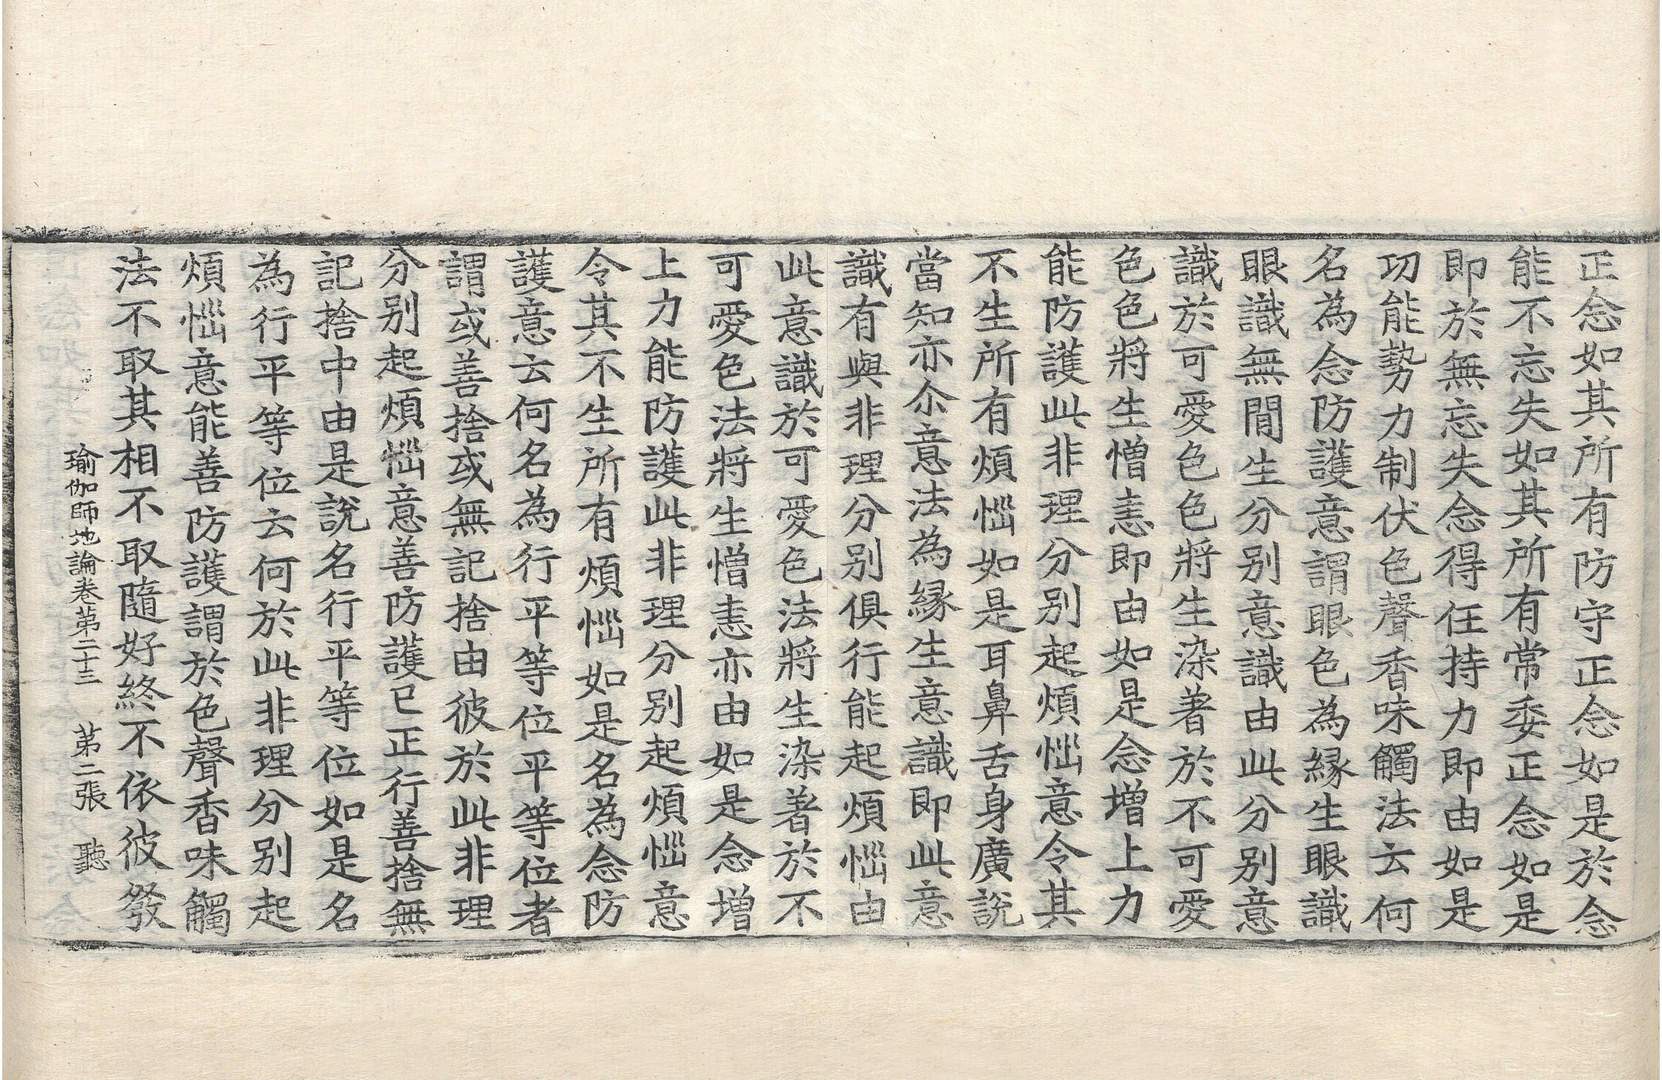 正念如其所有防守正念如是於念
能不忘失如其所有常委正念如是
即於無忘失念得任持力即由如是
功能勢力制伏色聲香味觸法云何
名為念防護意謂眼色為緣生眼識
眼識無間生分別意識由此分別意
識於可愛色色將生染著於不可愛
色色將生憎恚即由如是念增上力
能防護此非理分別起煩惱意令其
不生所有煩惱如是耳鼻舌身廣說
當知亦尒意法為緣生意識即此意
識有與非理分別俱行能起煩惱由
此意識於可愛色法將生染著於不
可愛色法將生憎恚亦由如是念增
上力能防護此非理分別起煩惱意
令其不生所有煩惱如是名為念防
護意云何名為行平等位平等位者
謂或善捨或無記捨由彼於此非理
分別起煩惱意善防護已正行善捨無
記捨中由是說名行平等位如是名
為行平等位云何於此非理分別起
煩惱意能善防護謂於色聲香味觸
法不取其相不取隨好終不依彼發
瑜伽師地論卷第二十三 第二張 聽